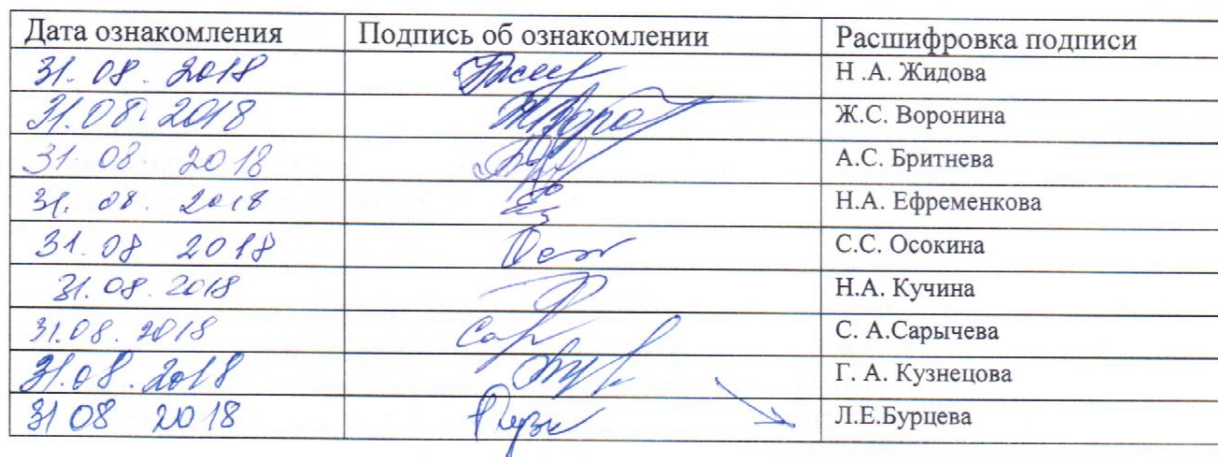 Дата ознакомления Подпись об ознакомлении Расшифровка подписи
31. 08. 2018 Н .А. Жидова
31.08. 2018 Ж.С. Воронина
31. 08. 2018 А.С. Бритнева
31. 08. 2018 Н.А. Ефременкова
31.08 2018 С.С. Осокина
31.08.2018 Н.А. Кучина
31.08.2018 С. А.Сарычева
31.08.2018 Г. А. Кузнецова
31 08 2018 Л.Е.Бурцева